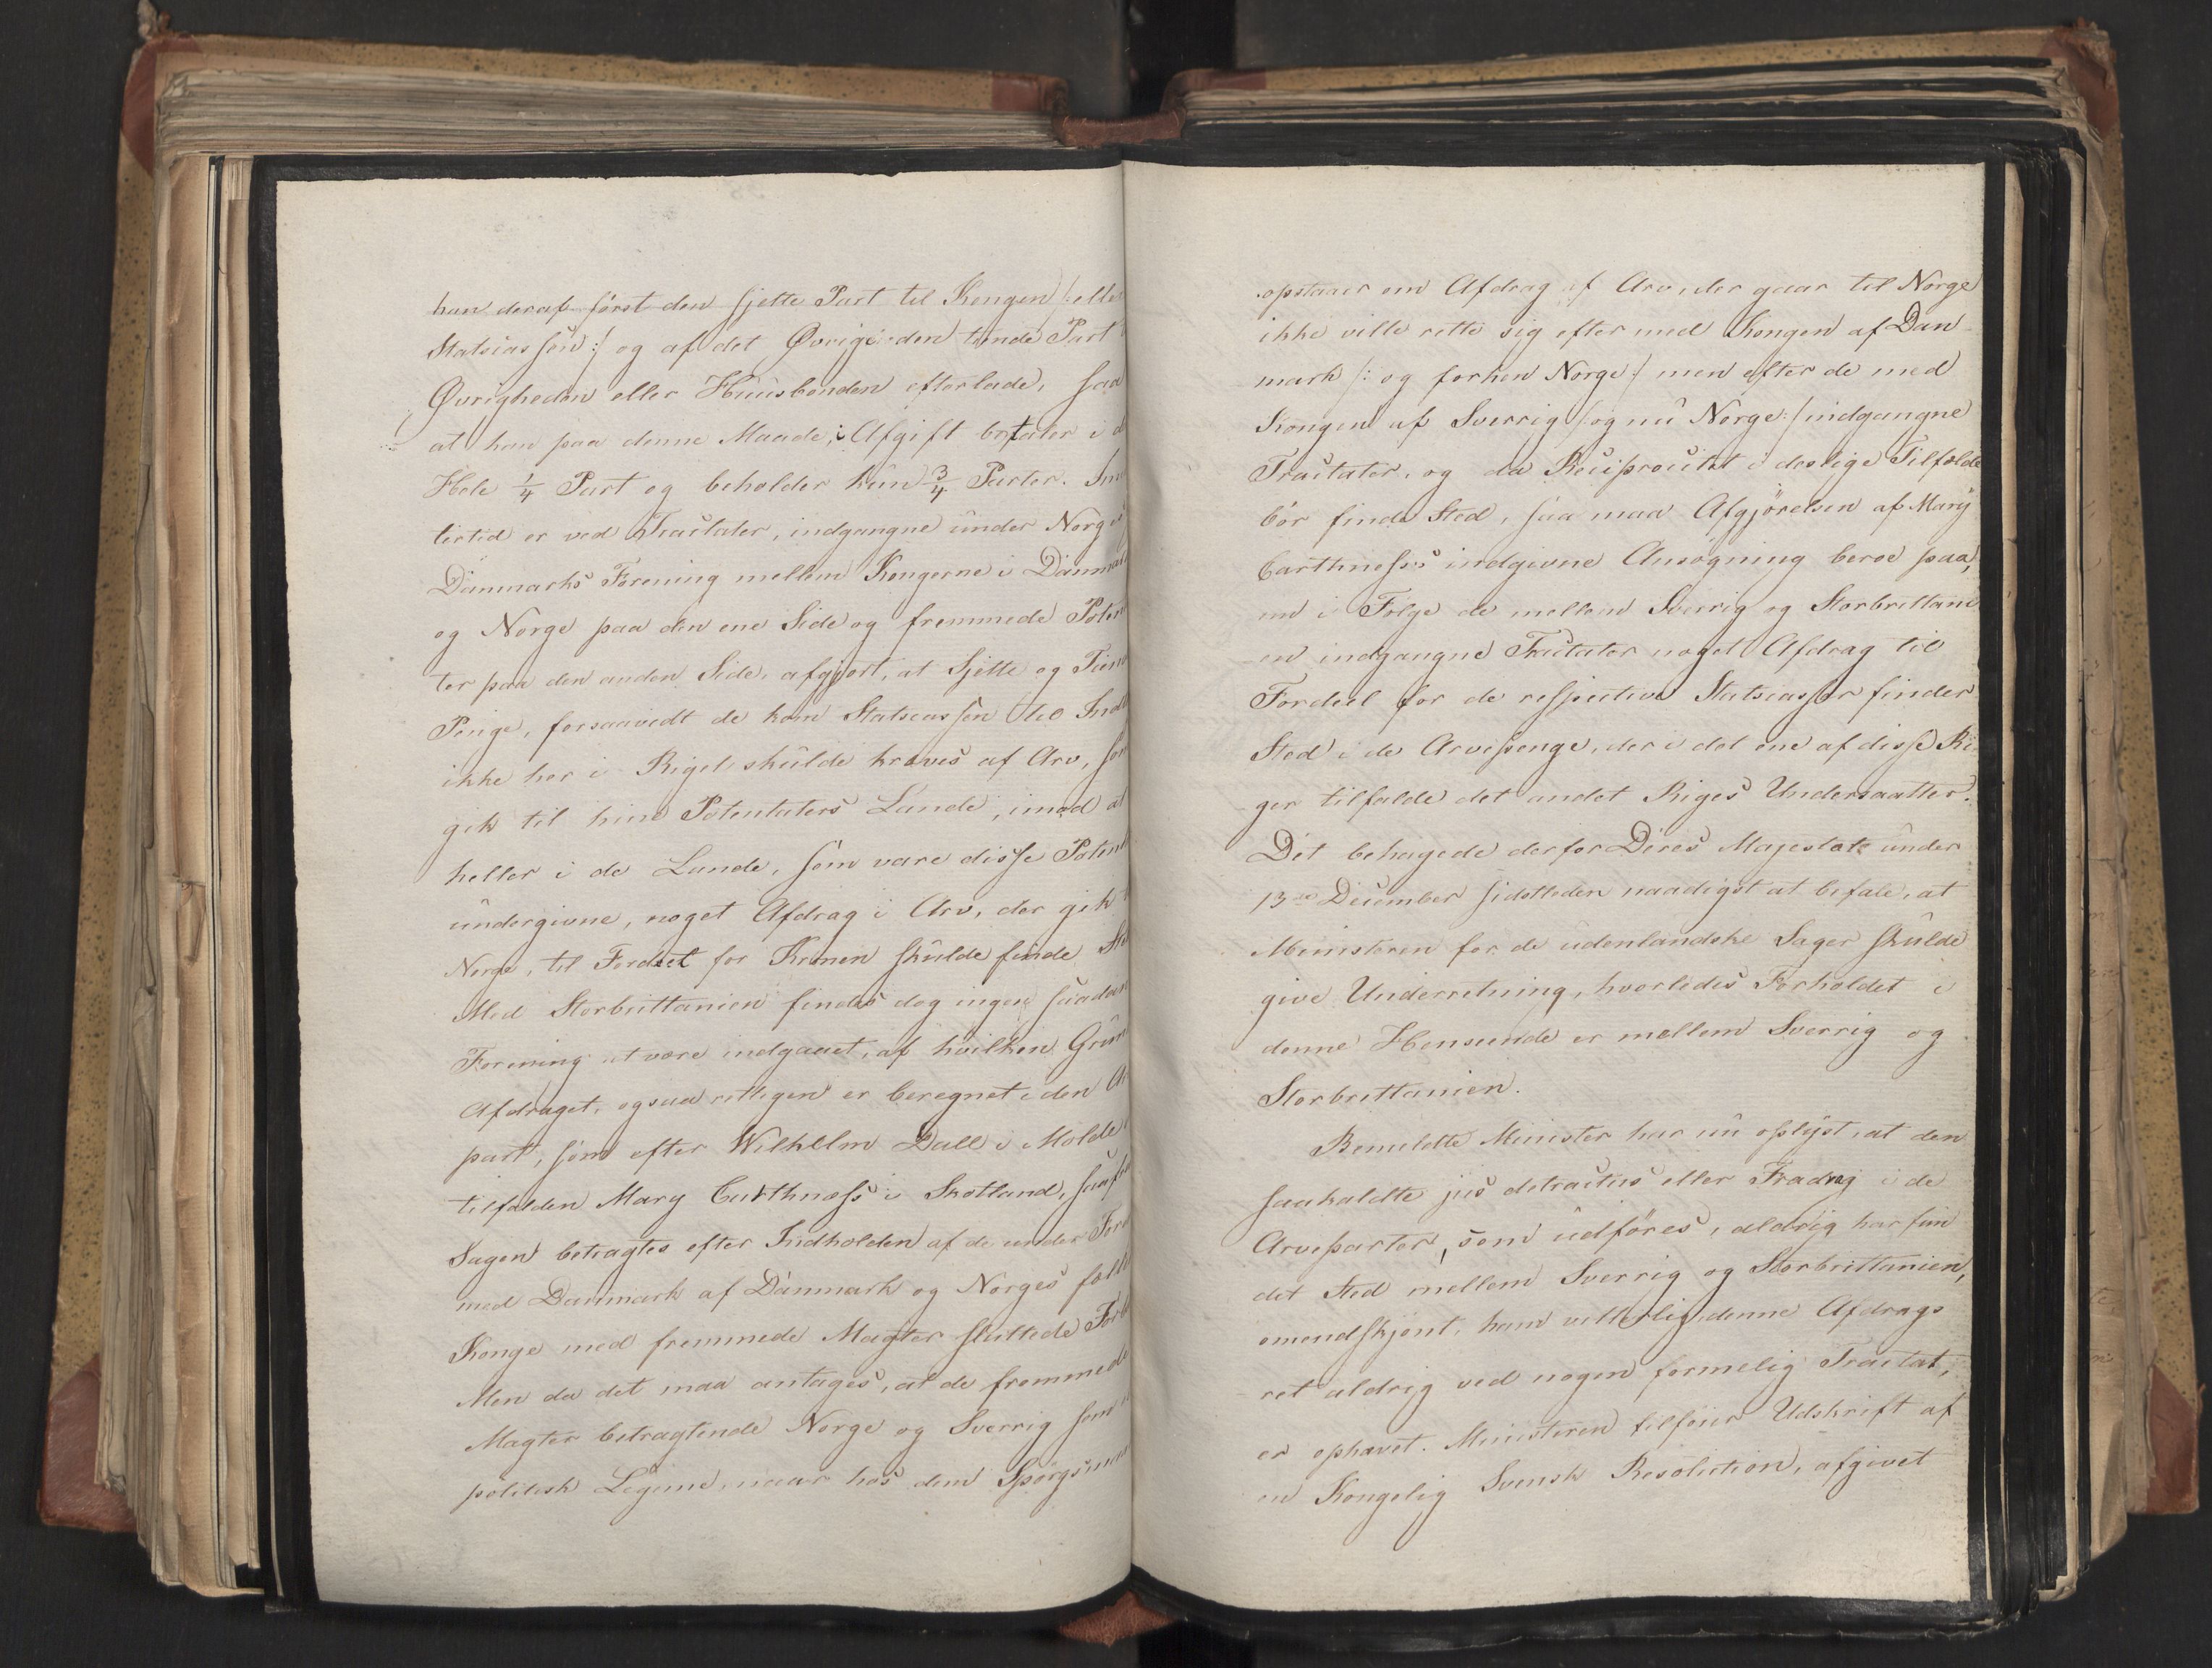 han deraf først den sjette Part til Kongen /: eller
Statscassen :/ og af det Øvrige den tiende Part
Øvrigheden eller Huusbonden efterlade, saa
at han paa denne Maade i Afgift betaler i d
Hele 1/4 Part og beholder kun 3/4 Parter. Im
lertid er ved Tractater, indgangne under Norges
Danmarks Forening mellem Kongerne i Danmark
og Norge paa den ene Side og fremmede Poten
ter paa den anden Side, afgjort, at Sjette og Tiende
Penge, forsaavidt de kom Statscassen til Indt
ikke her i Riget skulde kræves af Arv, som
gik til hine Potentaters Lande, imod at
heller i de Lande, som vare disse Potent
undergivne, noget Afdrag i Arv, der gik t
Norge, til Fordeel for Kronen skulde finde Sted
Med Storbrittanien findes dog ingen saadan
Forening at være indgaaet, af hvilken Grund
Afdraget, ogsaa retteligen er beregnet i den Ar
part, som efter Wilhelm Dall i Molde
tilfalden Mary Carthness i Skotland, saafr
Sagen betragtes efter Indholden af de under For
med Danmark af Danmark og Norges fælle
Konge med fremmede Magter sluttede Forb
Men da det maa antages, at de fremmede
Magter betragtende Norge og Sverrig som
politisk Legeme, naar hos dem Spørgsmaa
opstaaer om Afdrag af Arv, der gaar til Norge
ikke ville rette sig efter med Kongen af Dan
mark /: og forhen Norge :/ men efter de med
Kongen af Sverrig /: og nu Norge :/ indgangne
Tractater, og da Reciprocitet i deslige Tilfælde
bør finde Sted, saa maa Afgjørelsen af Mary
Carthness's indgivne Ansøgning beroe paa,
om i Følge de mellem Sverrig og Storbrittani
en indgangne Tractater noget Afdrag til
Fordeel for de respective Statscasser finder
Sted i de Arvepenge, der i det ene af disse Ri
ger tilfalde det andet Riges Undersaatter.
Det behagede derfor Deres Majestæt under
13de December sidstleden naadigst at befale, at
Ministeren for de udenlandske Sager skulde
give Underretning, hvorledes Forholdet i
denne Henseende er mellem Sverrig og
Storbrittanien.
Bemeldte Minister har nu oplyst, at den
saakaldte jus detractus eller Fradrag i de
Arveparter, som udføres, aldrig har fun
det Sted mellem Sverrig og Storbrittanien,
omendskjønt, ham vitterlig, denne Afdrags
ret aldrig ved nogen formelig Tractat,
er ophævet. Ministeren tilføier Udskrift af
en Kongelig Svensk Resolution, afgivet